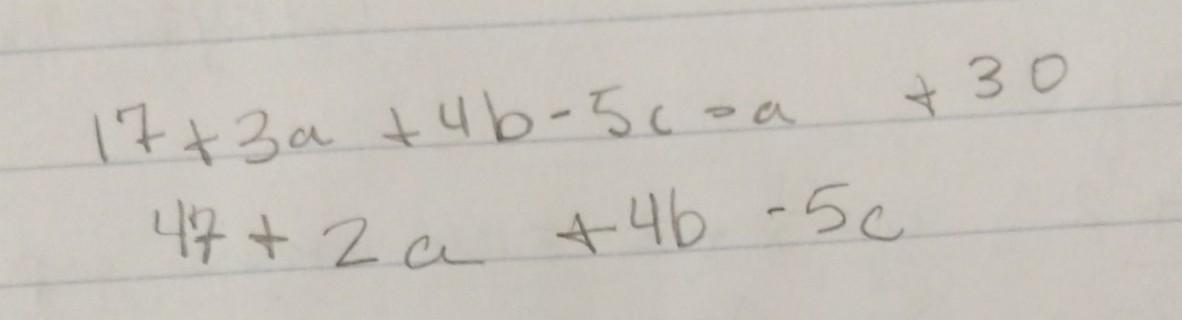 17+3a +4b-5c-a +30
47+2a +4b -5c